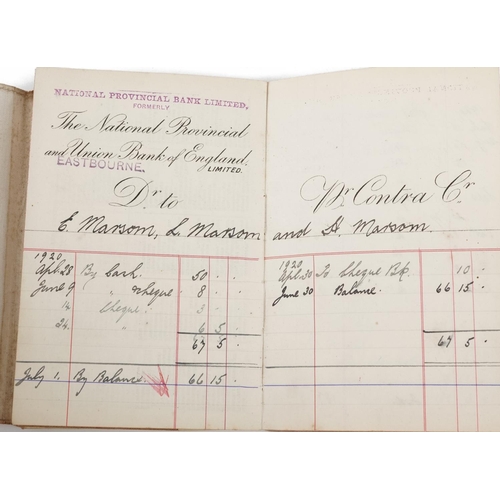 NATIONAL PROVINCIAL BANK LIMITED,
FORMERLY
The National Provincial
and Union Bank of England.
LIMITED.
EASTBOURNE.
Dr to
E. Marsom, L. Marsom
1920,
Apl. 28 By Cash. 50 . .
June 9 " Cheque 8 . .
14. Cheque. 3 . .
24. " 6 5 .
67 5 .
July 1. By Balance. 66 15 .
Contra Cr
and H. Marsom.
1920
Apl. 30 To Cheque Bk. 10 .
June 30 Balance. 66 15 .
67 5 .